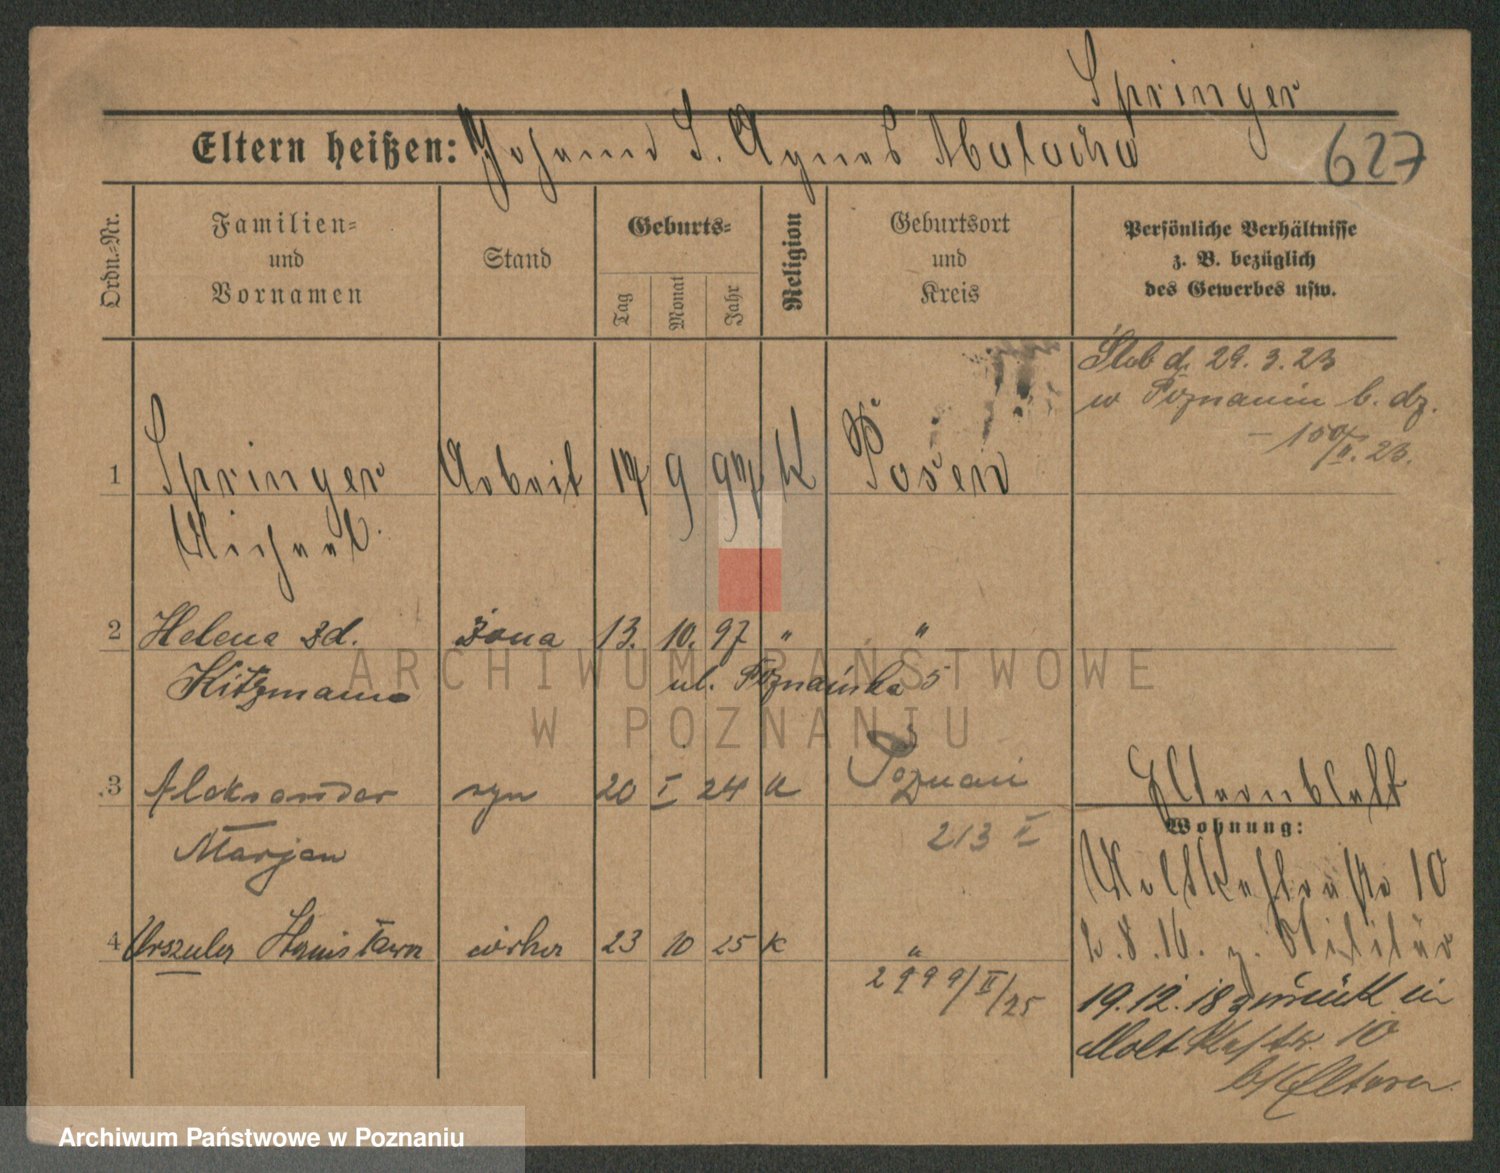 Springer
Eltern heißen: Johann S. Agnes
627
Ordn.-Nr.
Familien- und Vornamen
Stand
Geburts-
Tag
Monat
Jahr
Religion
Geburtsort und Kreis
Persönliche Verhältnisse z. B. bezüglich des Gewerbes usw.
Ślub d. 29. 3. 23
w Poznaniu b. dz.
1 Springer Arbeit 14 9 97 K Posen
Michael
2 Helena zd. żona 13. 10. 97 " "
Kitzmann ul. Poznańska 5
3 Aleksander syn 20 I 24 K Poznań
213 II
Marjan
4 Urszula Stanisława córka 23 10 25 K "
2999/II/25
Elternblatt
Wohnung:
Moltkestraße 10
2.8.16. z. Militär
19.12.18 zurück in
Moltkestr. 10
b/Eltern
ARCHIWUM PAŃSTWOWE
W POZNANIU
Archiwum Państwowe w Poznaniu